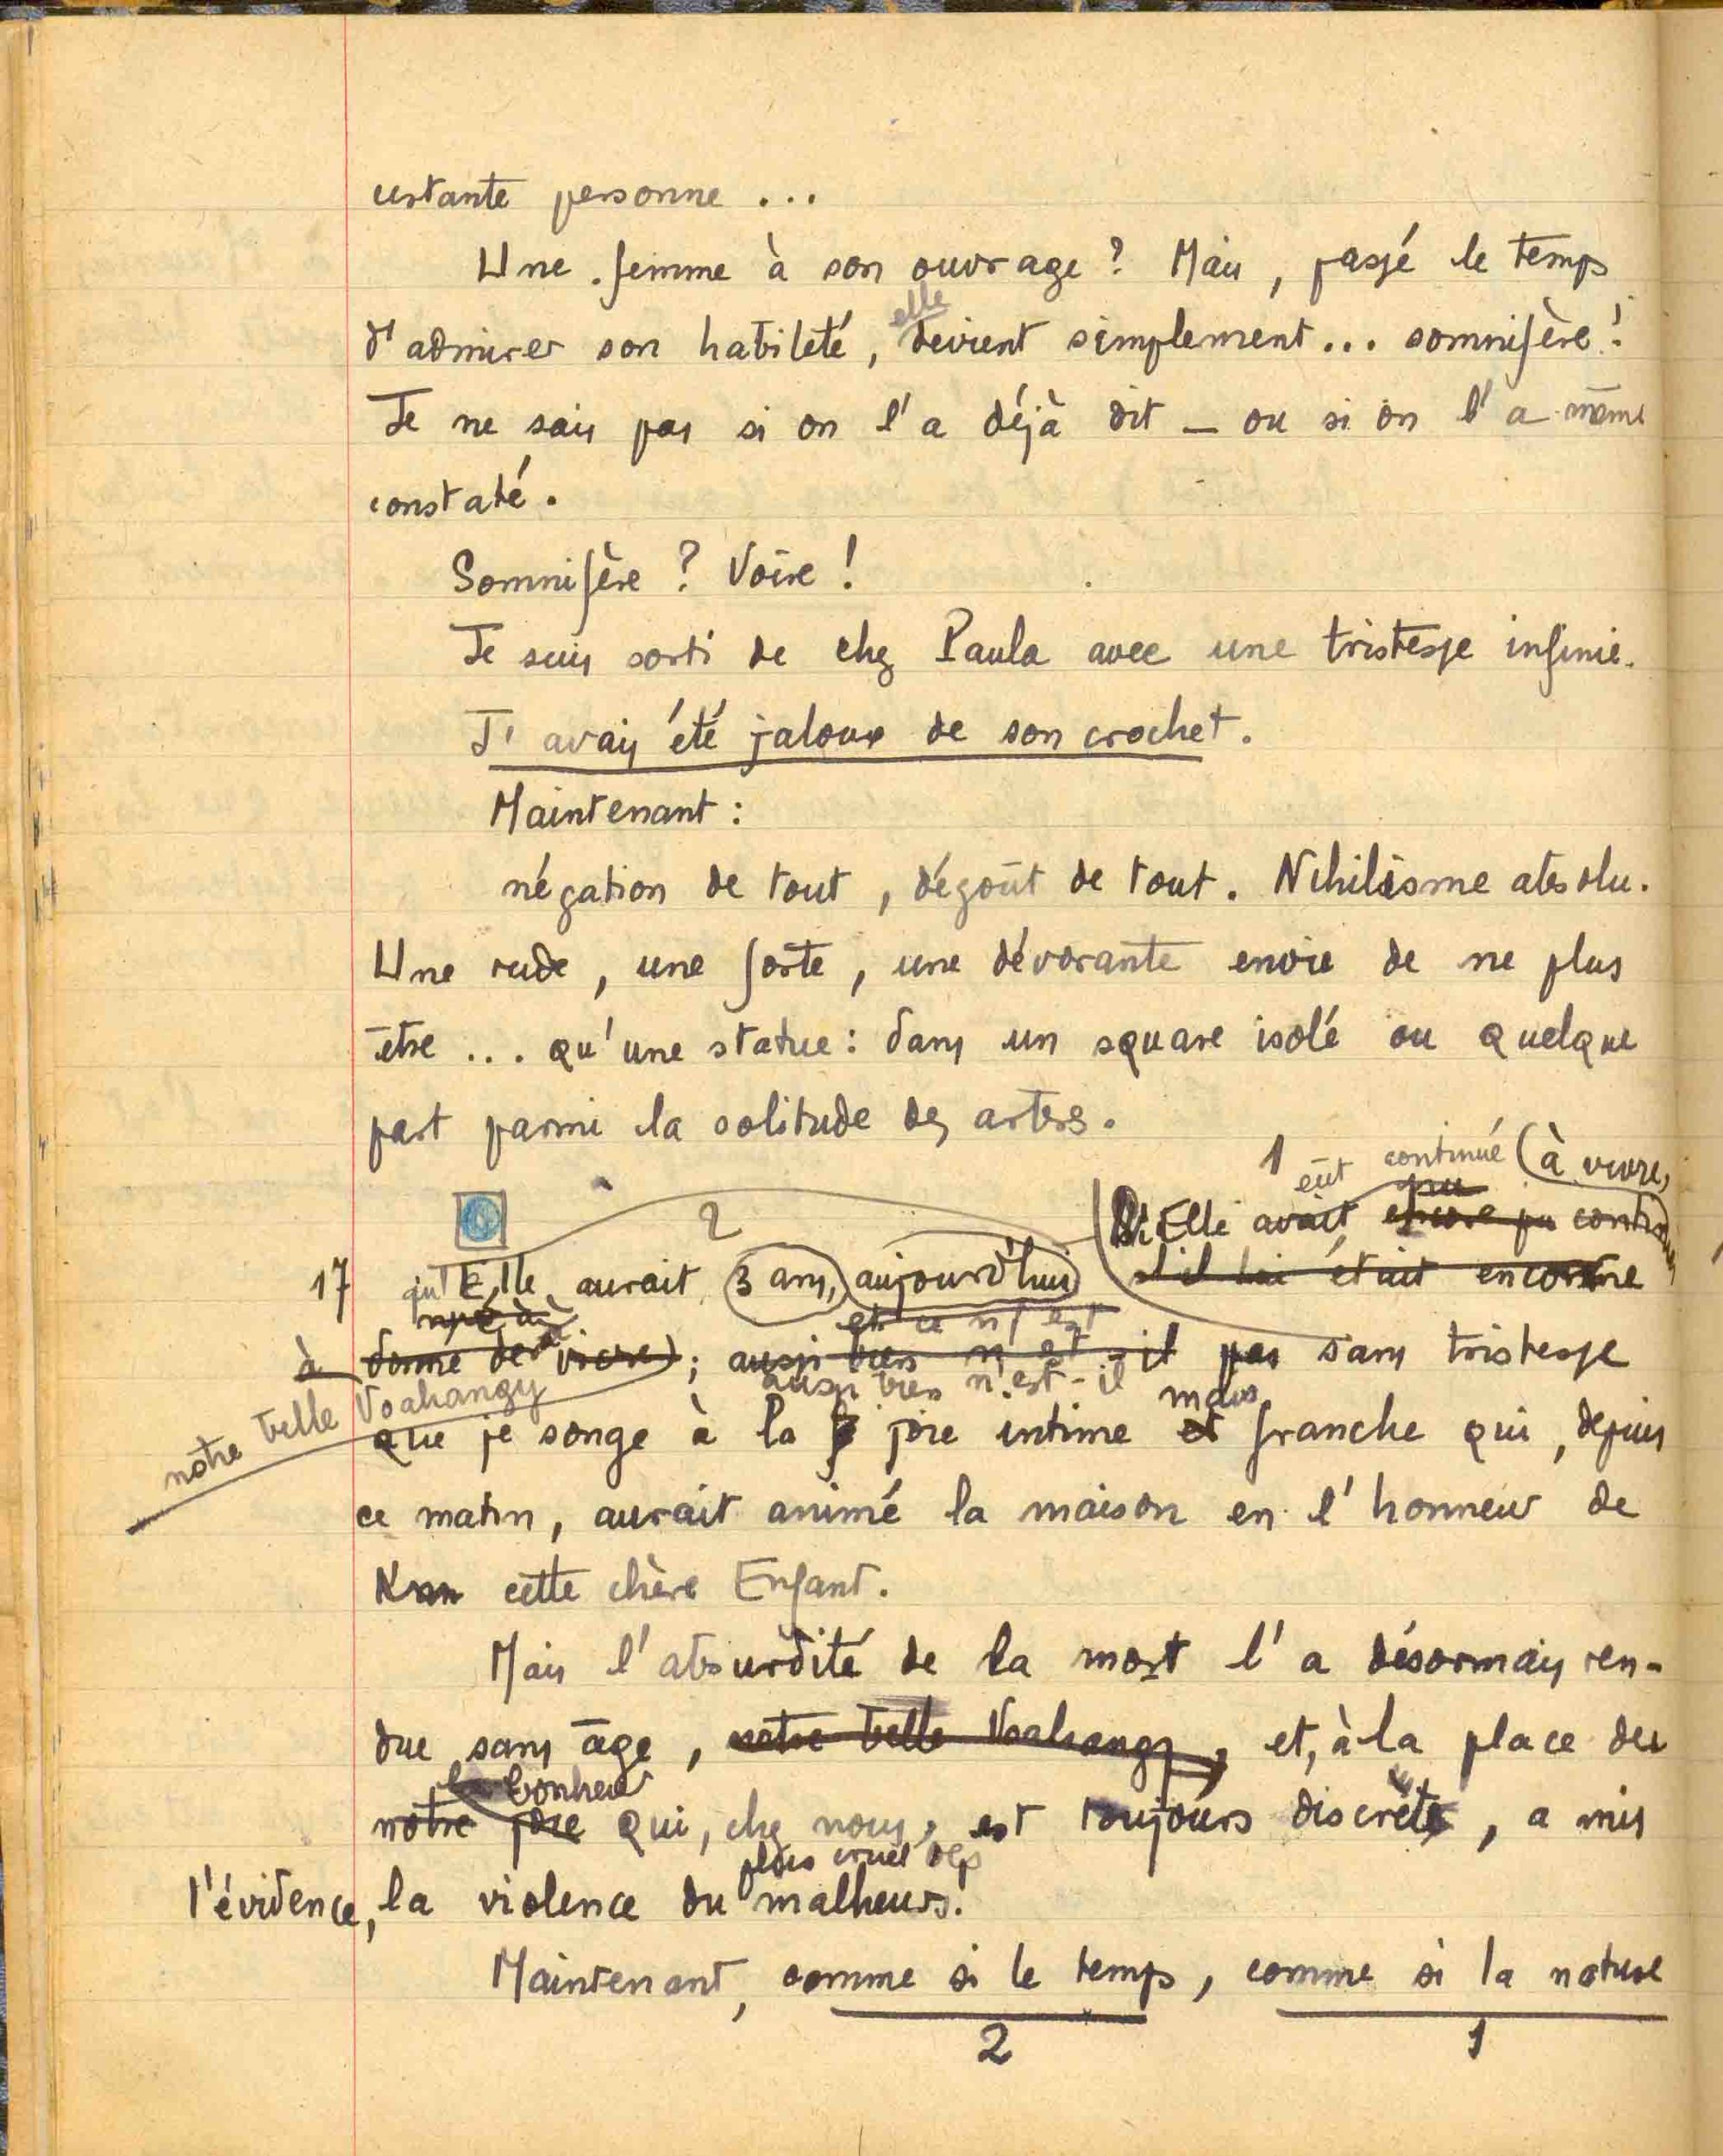 ustante personne ...
Une femme à son ouvrage ? Mais, passé le temps
elle
d'admirer son habileté, devient simplement... somnifère !
Je ne sais pas si on l'a déjà dit – ou si on l'a même
constaté.
Somnifère ? Voire !
Je suis sorti de chez Paula avec une tristesse infinie.
J'avais été jaloux de son crochet.
Maintenant :
négation de tout, dégoût de tout. Nihilisme absolu.
Une rude, une forte, une dévorante envie de ne plus
être ... qu'une statue : dans un square isolé ou quelque
part parmi la solitude des arbres.
1 eût continué (à vivre,
pu
2 Si Elle avait encore pu continuer
17 qu'Elle aurait 3 ans, aujourd'hui s'il lui était encore
et ce n'est
à donné de vivre) ; aussi bien n'est-il pas sans tristesse
notre belle Voahangy aussi bien n'est-il mais
que je songe à la joie intime et franche qui, depuis
ce matin, aurait animé la maison en l'honneur de
cette chère Enfant.
Mais l'absurdité de la mort l'a désormais ren-
due sans âge, notre belle Voahangy, et, à la place de
bonheur
notre joie qui, chez nous, est toujours discrète, a mis
plus cruel des
l'évidence, la violence du malheurs.
Maintenant, comme si le temps, comme si la nature
2 1